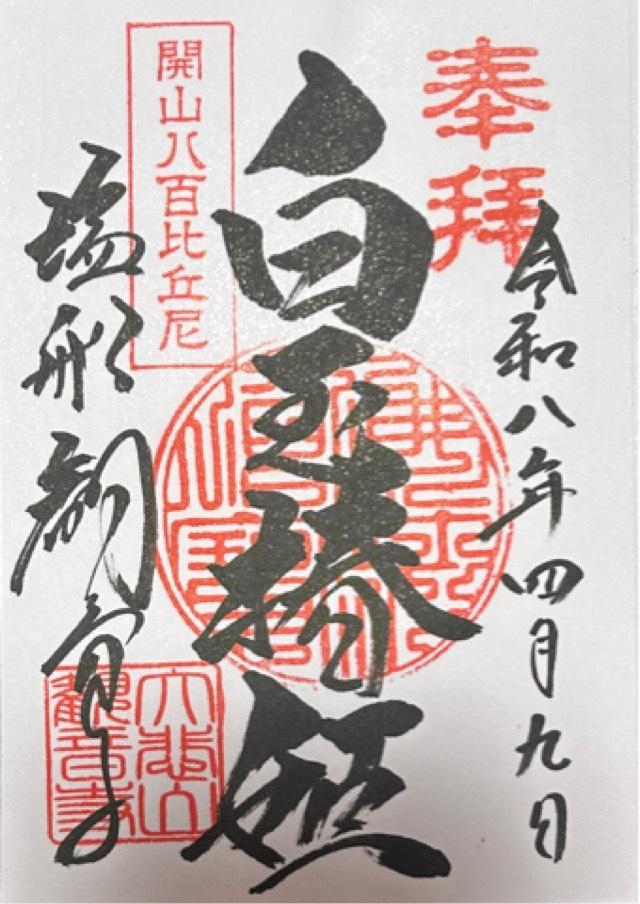 奉拝
令和八年四月九日
白玉椿姫
開山八百比丘尼
塩船観音寺
大悲山
観音寺